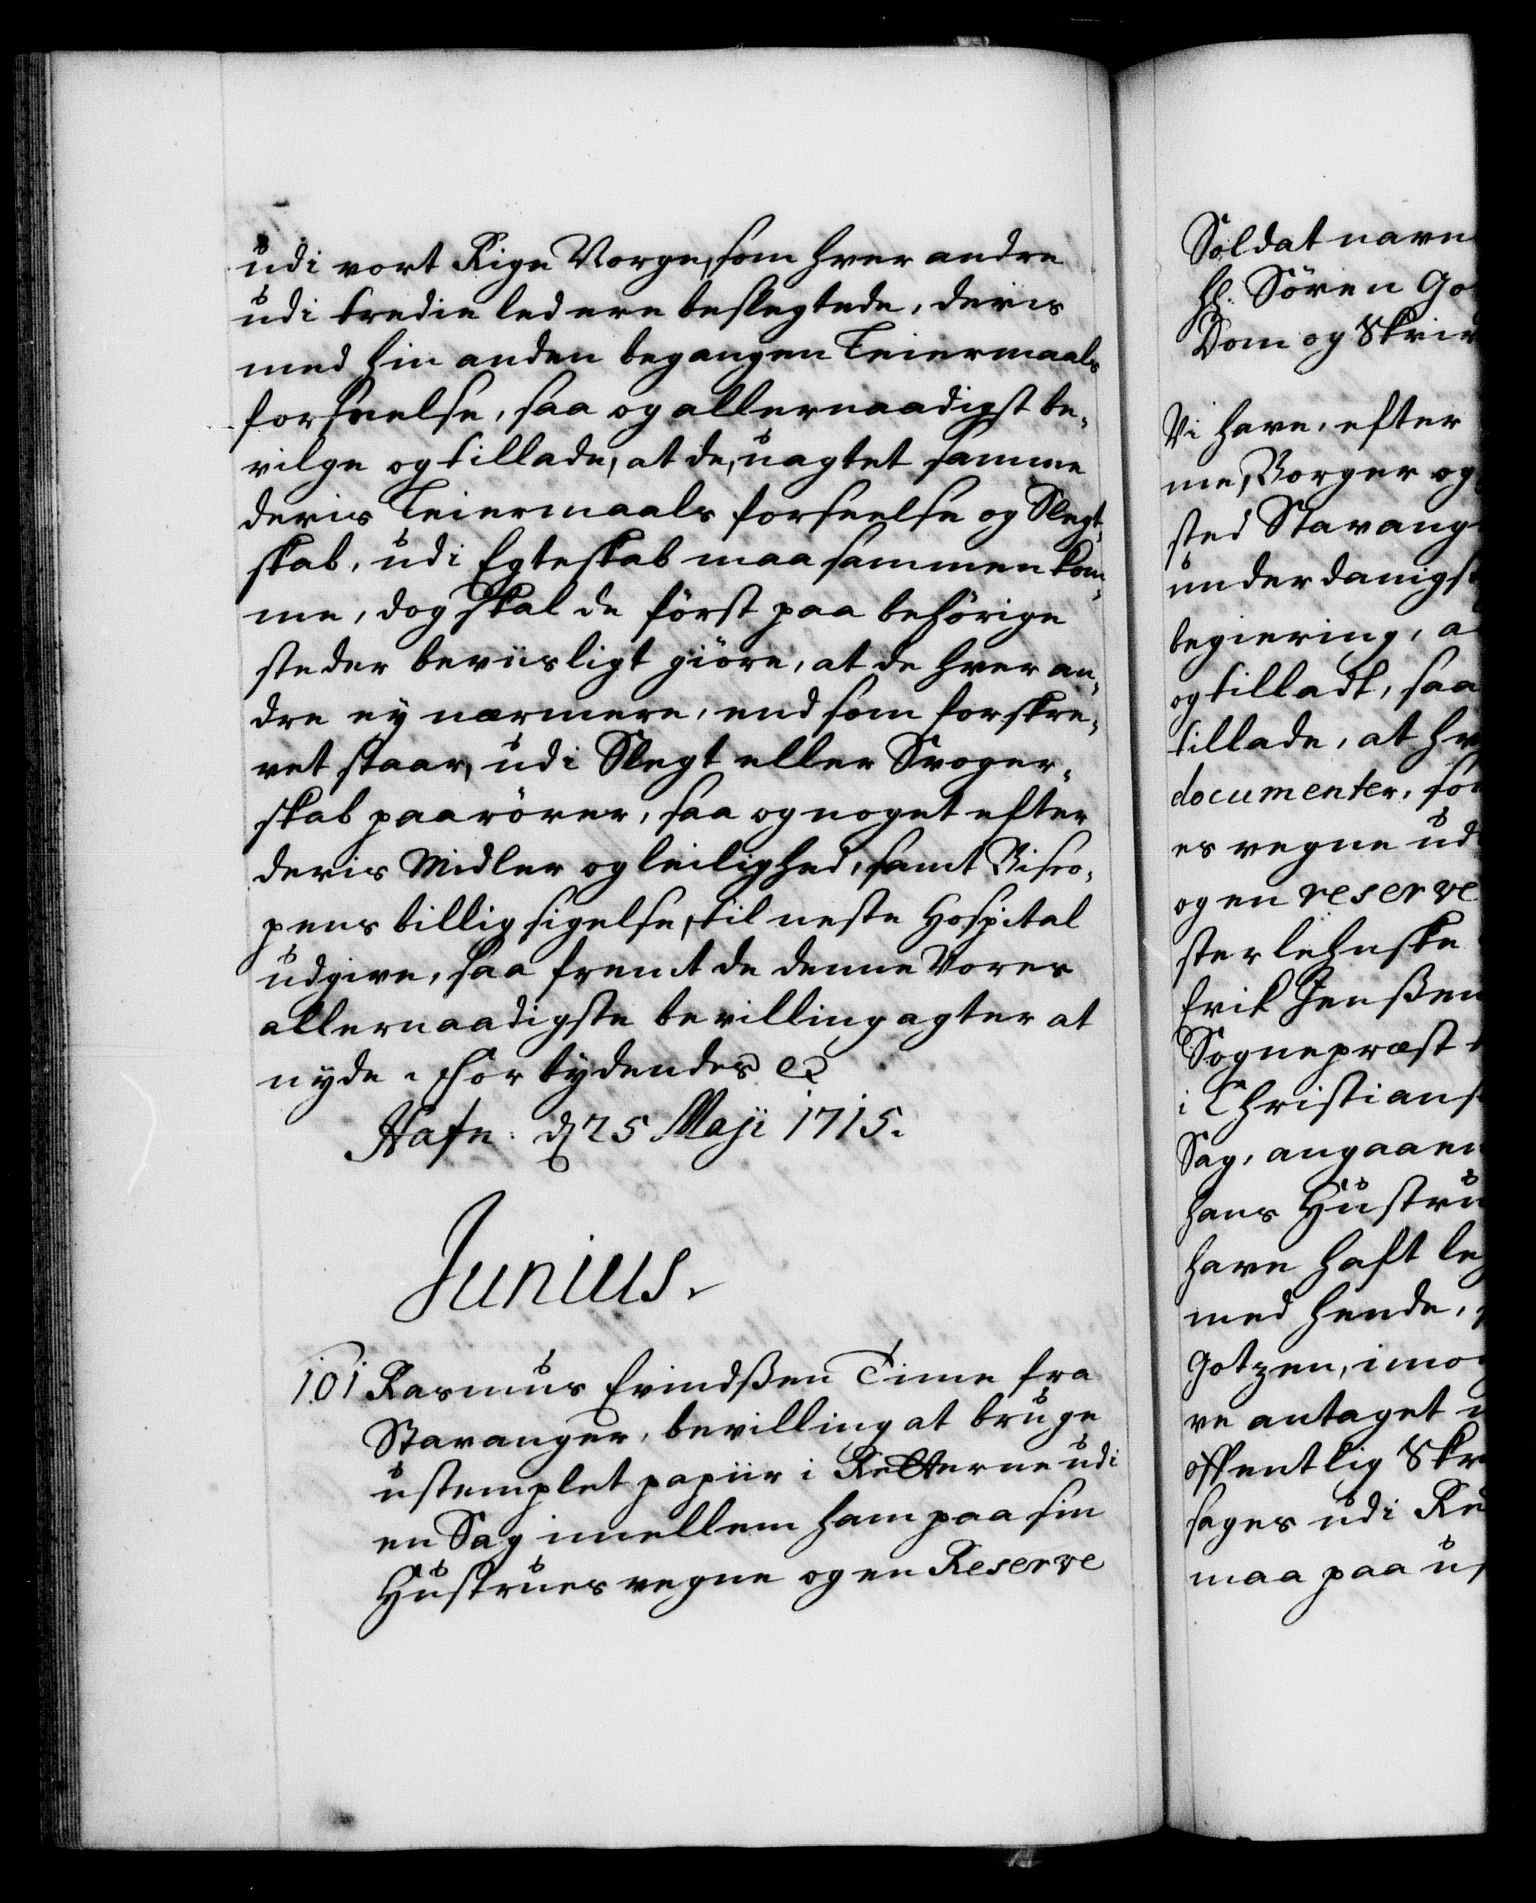 udi vort Rige Norge, som hver andre
udi tredie led ere beslegtede, deris
med hin anden begangen Leiermaals
forseelse, saa og allernaadigst be-
vilge og tillade, at de, uagtet samme
deris Leiermaals forseelse og Slegt-
skab, udi Egteskab maa sammen kom-
me, dog skal de först paa behörige
steder beviisligt giöre, at de hver an-
dre ey nærmere, end som forskre-
vet staar, udi Slegt eller Svoger-
skab paarörer, saa og noget efter
deris Midler og leilighed, samt Bisco-
pens billig sigelse, til neste Hospital
udgive, saa fremt de denne Vores
allernaadigste bevilling agter at
nyde. Forbydendes &
Hafn: d 25 Maji 1715.
Junius.
101 Rasmus Evindßen Time fra
Stavanger, bevilling at bruge
ustemplet papiir i Retterne udi
en Sag imellem ham paa sin
Hustrues vegne og en Reserve
Soldat navn
Hl. Sören Go
Dom og Skriv
Vi have, efter
me, Borger og
sted Stavang
underdanigst
begiering, a
og tilladt, saa
tillade, at hv
documenter, som
es vegne ud
og en reserve
ster lehnske
Erik Jenßen
Sognepræst
i Christians
Sag, angaaen
hans Hustru
have haft le
med hende,
Gotzen, imo
ve antaget
offentlig Skr
sages udi Re
maa paa us